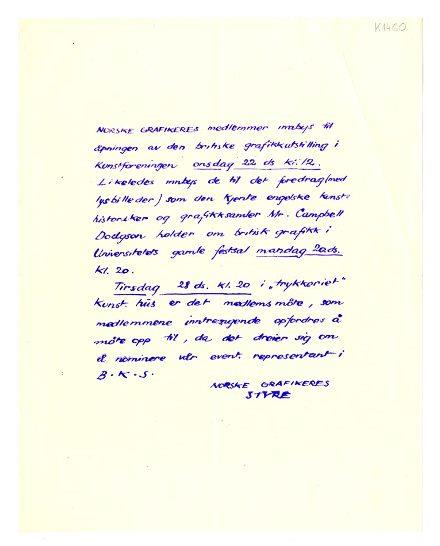 K1460
NORSKE GRAFIKERES medlemmer innbys til
åpningen av den britiske grafikkutstilling i
Kunstforeningen onsdag 22 ds kl. 12.
Likeledes innbys de til det foredrag (med
lysbilleder) som den kjente engelske kunst-
historiker og grafikksamler Mr. Campbell
Dodgson holder om britisk grafikk i
Universitetets gamle festsal mandag 20 ds.
kl. 20.
Tirsdag 28 ds. kl. 20 i „trykkeriet"
Kunst hus er det medlemsmöte, som
medlemmene inntrengende opfordres å
möte opp til, da det dreier sig om
å nominere vår event. representant i
B.K.S.
NORSKE GRAFIKERES
STYRE